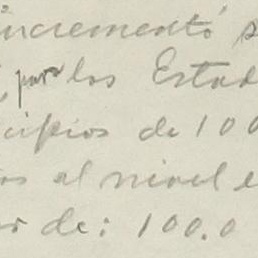 incrementó s
, para los Estad
cipios de 100
os al nivel e
s de: 100.0